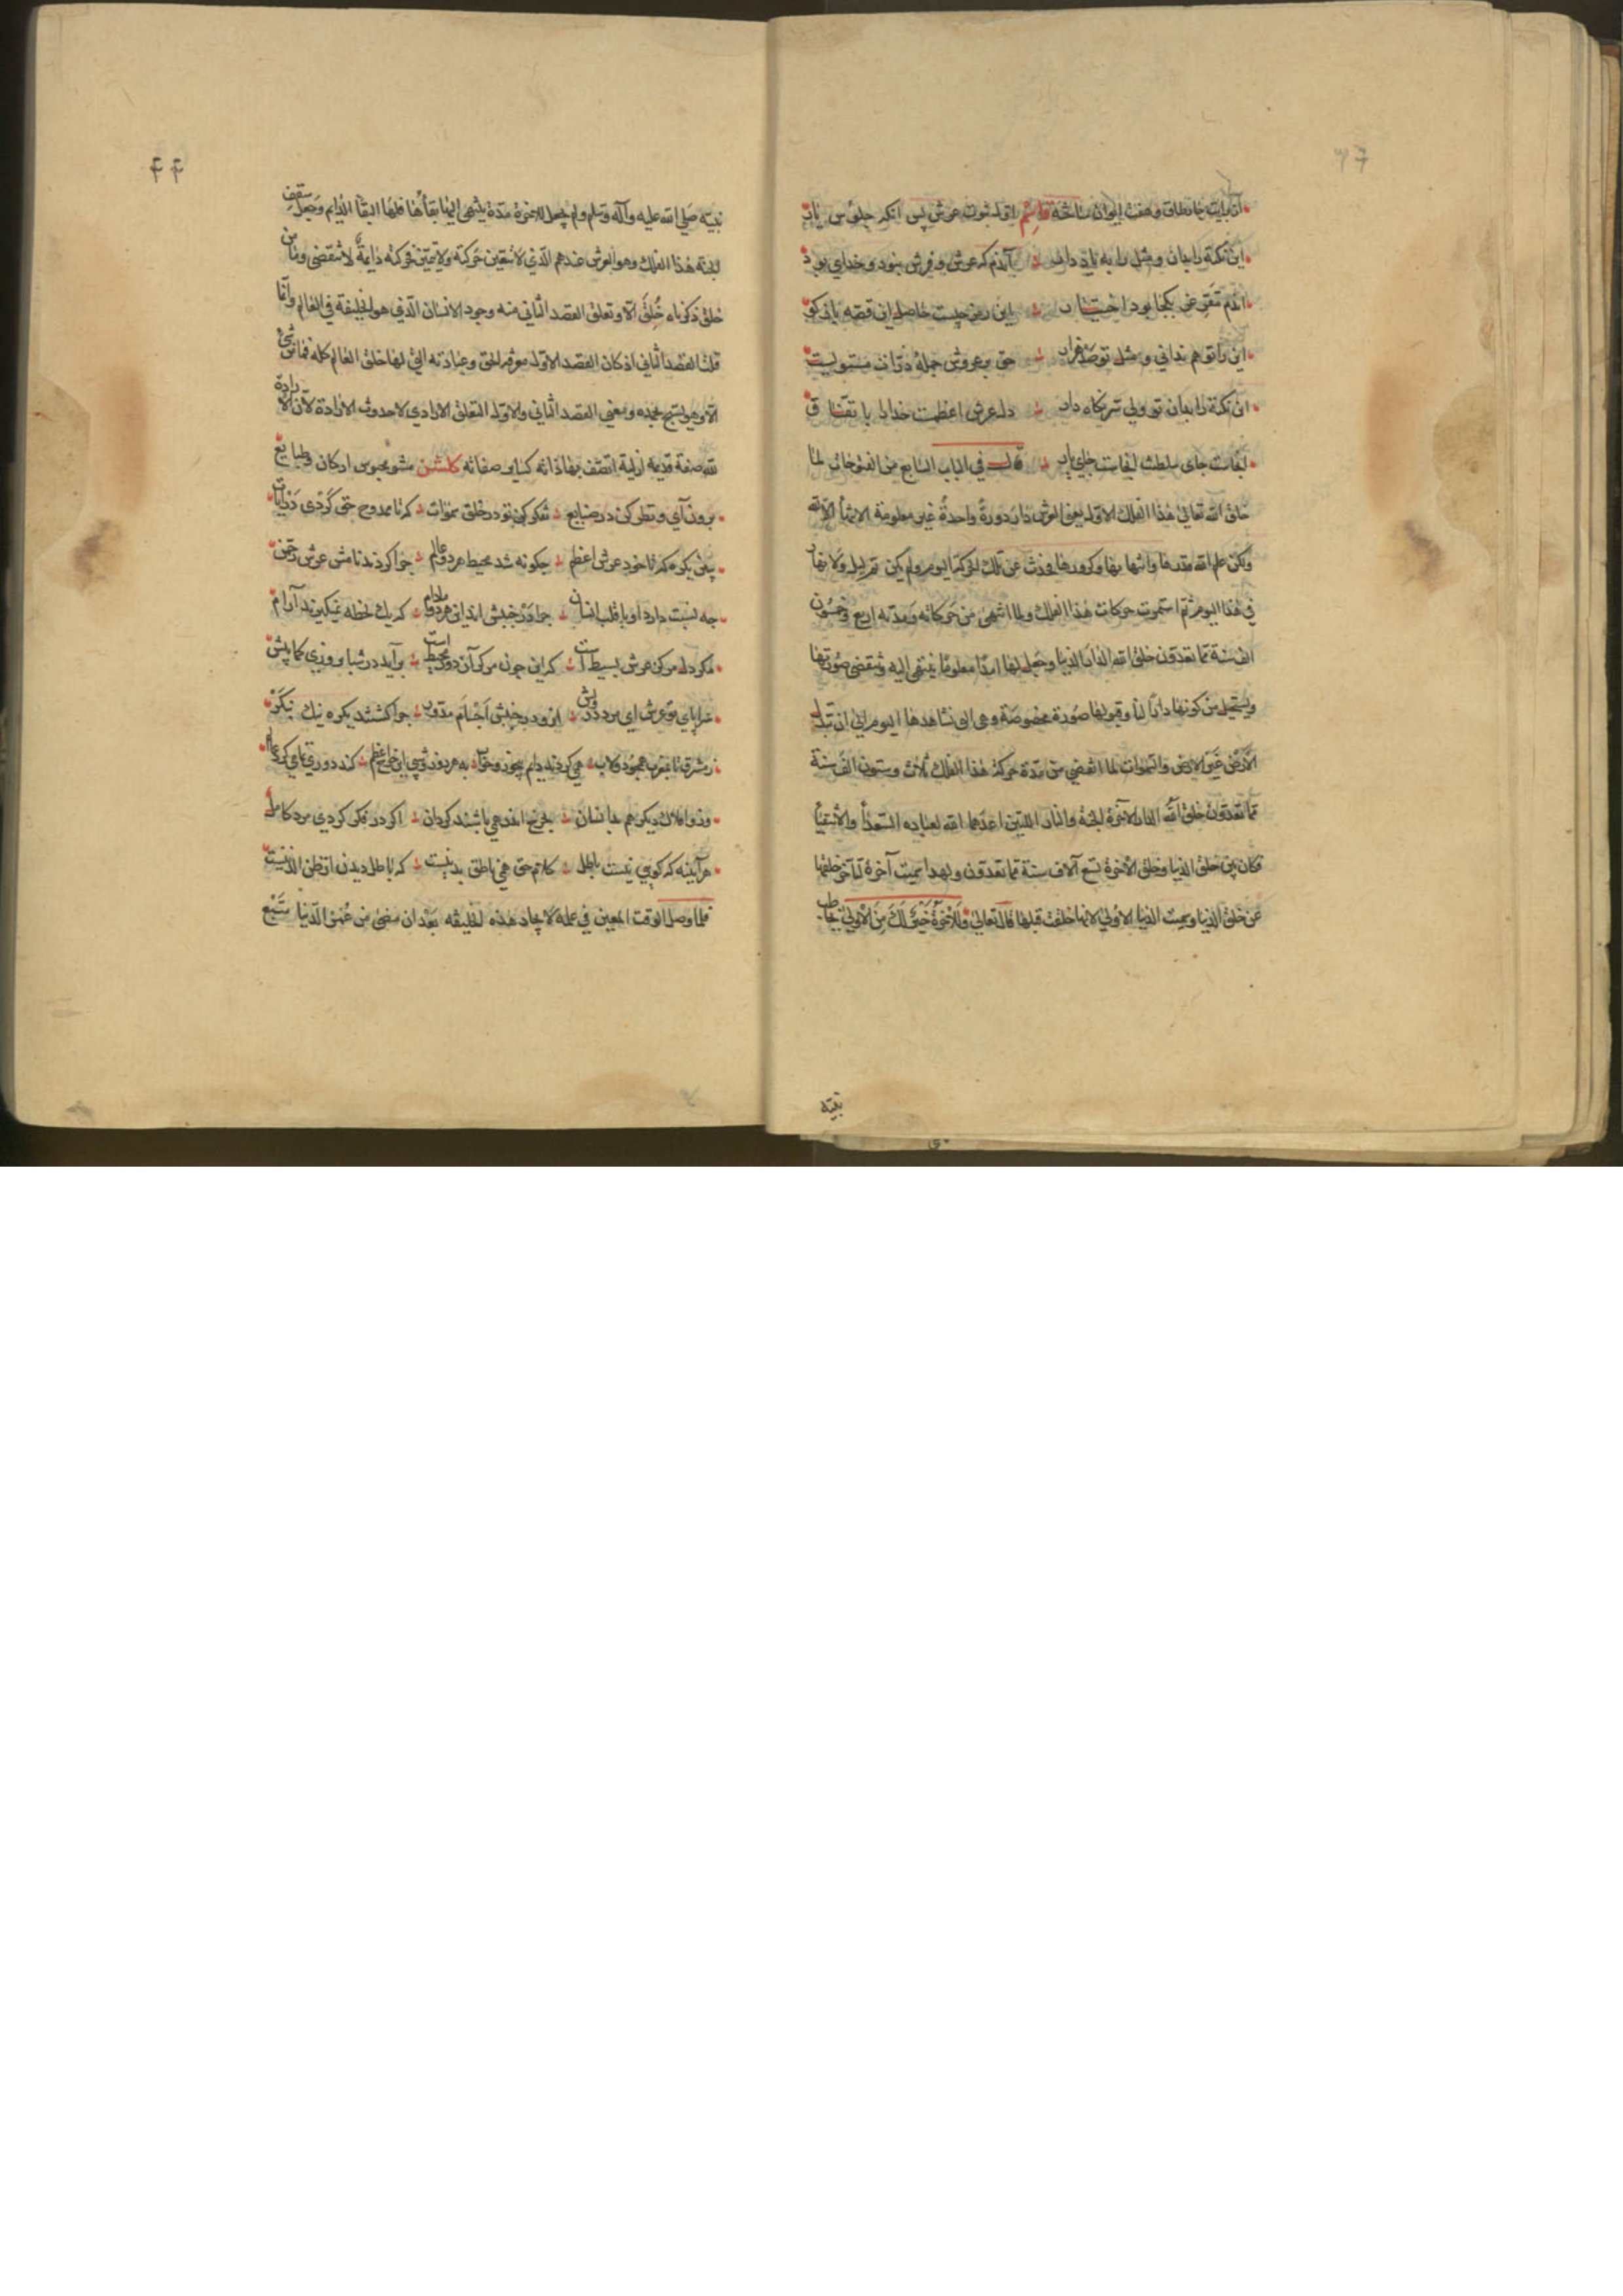 این نکته را بدان و مثل را به یاد دار آندم که عرش و فرش نبود و خدای بود
این رمز چیست حاصل این قصه باز کو
این را تو هم ندانی و مثل تو صد هزار حق بر عروش جمله ذرات مستویست
این نکته را بدان تو ولی سر نکاه دار دل عرش اعظمست خدا را باتفاق
قال في الباب السابع من الفتوحات لما
خلق الله تعالى هذا الفلك الاول يعني العرش دار دورة واحدة غير معلومة الانتهاء الا لله
في هذا اليوم ثم استمرت حركات هذا الفلك ولما انتهى من حركاته ومدته اربع وخمسون
الف سنة مما تعدون خلق الله الدار الدنيا وجعل لها امدا معلوما ينتهي اليه وتنقضي صورتها
ويستحيل من كونها دارا لنا وقبولها صورة مخصوصة وهي التي نشاهدها اليوم الى ان تبدل
الارض غير الارض والسموات لما انقضى من مدة حركة هذا الفلك ثلاث وستون الف سنة
مما تعدون خلق الله الدار الآخرة الجنة والنار اللتين اعدهما الله لعباده السعداء والاشقياء
فكان بين خلق الدنيا وخلق الآخرة تسع آلاف سنة مما تعدون ولهذا سميت آخرة لتأخر خلقها
عن خلق الدنيا وسميت الدنيا الاولى لانها خلقت قبلها قال تعالى وللآخرة خير لك من الاولى يخاطب
نبيه
۴۴
نبيه صلى الله عليه وآله وسلم ولم يجعل للآخرة مدة ينتهي اليها بقاءها فلها البقاء الدايم وجعل سقف
الجنة هذا الفلك وهو العرش عندهم الذي لا تتعين حركته ولا تتميز فحركته دايمة لا تنقضي وما من
خلق ذكرناه خلق الا وتعلق القصد الثاني منه وجود الانسان الذي هو الخليفة في العالم وانما
قلنا القصد الثاني اذ كان القصد الاول معرفة الحق وعبادته التي لها خلق العالم كله فما من شئ
الا وهو يسبح بحمده ومعنى القصد الثاني والاول التعلق الارادي لا حدوث الارادة لان الارادة
لله صفة قديمة ازلية اتصف بها ذاته كساير صفاته كلشن مشو محبوس اركان و طبايع
برون آي و نظر كن در صنايع تفكر كن تو در خلق سموات كه تا ممدوح حق كردي در آيات
ببين يكره كه تا خود عرش اعظم چكونه شد محيط هر دو عالم چرا كردند نامش عرش رحمن
چه نسبت دارد او با قلب انسان چرا در جنبش اند اين هر دو مادام كه يك لحظه نميكيرند آرام
مكر دل مركز عرش بسيط است كه اين چون مركز آن دور محيط است برآيد در شبا روزي كما بيش
سراپاي تو عرش اي مرد درويش ازو در جنبش اجسام مدور چرا كشتند يكره نيك بنكر
ز مشرق تا بمغرب همچو دولاب همي كردند دايم بيخور و خواب به هر روز و شبي اين چرخ اعظم كند دوري تمامي كرد عالم
وزو افلاك ديكر هم بدانسان بچرخ اندر همي باشند كردان اكر در فكر كردي مرد كامل
هرآينه كه كويي نيست باطل كلام حق همي ناطق بدينست كه باطل ديدن از ظن الذينست
فلما وصل الوقت المعين في علمه لايجاد هذه الخليفه بعد ان مضى من عمر الدنيا سبع